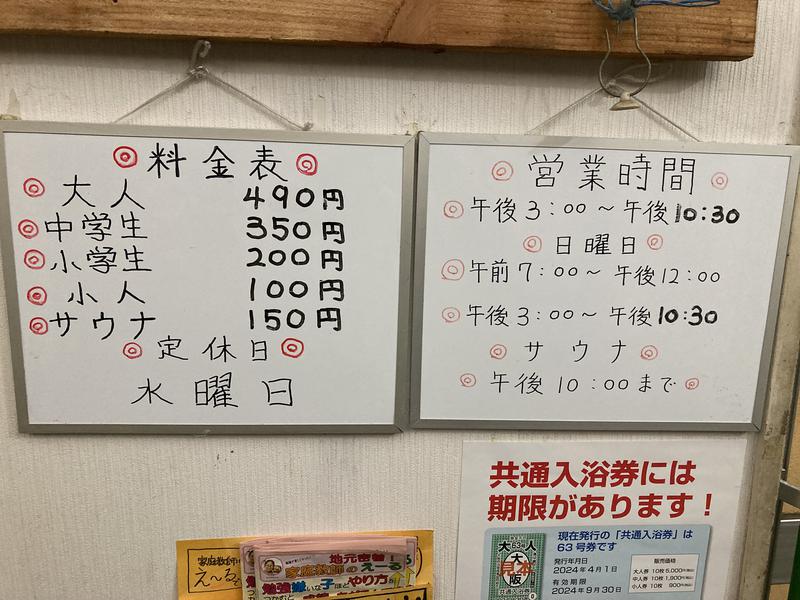 ◎料金表◎
◎大人 490円
◎中学生 350円
◎小学生 200円
◎小人 100円
◎サウナ 150円
◎定休日◎
水曜日
◎営業時間◎
◎午後3:00～午後10:30
◎日曜日◎
◎午前7:00～午後12:00
◎午後3:00～午後10:30
◎サウナ◎
◎午後10:00まで◎
共通入浴券には
期限があります！
現在発行の「共通入浴券」は
63号券です
発行年月日
2024年4月1日
有効期限
2024年9月30日
販売価格
大人券 10枚5,000円(税込)
中人券 10枚1,900円(税込)
小人券 10枚 900円(税込)
63号
大人
大阪
見本
共通入浴券
家庭教師
え～る
地元密着！
家庭教師のえーる
勉強嫌いな子ほどやり方